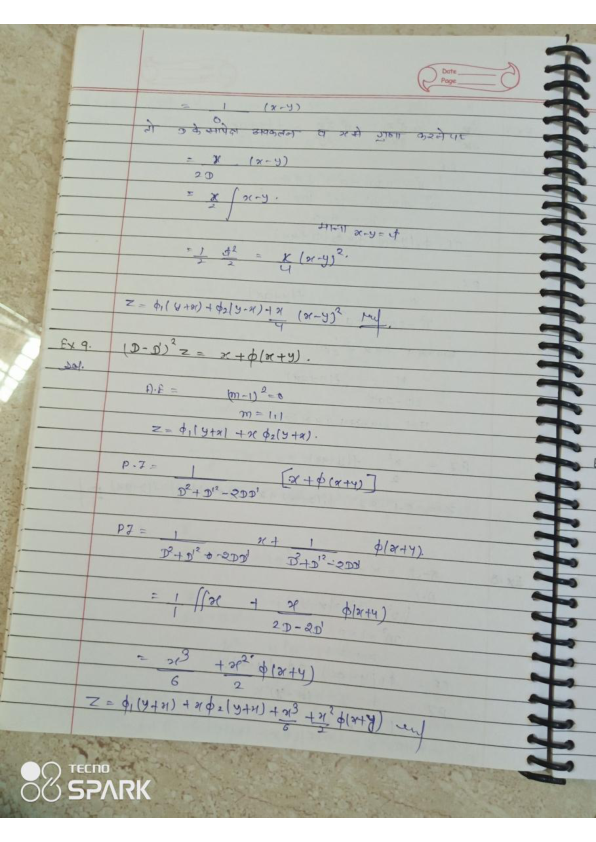 Date
Page
= 1/0 (x-y)
तो D के सापेक्ष अवकलन व x से गुणा करने पर
= x/2D (x-y)
= x/2 ∫ x-y.
माना x-y = t
= 1/2 t²/2 = x/4 (x-y)².
Z = ϕ₁(y+x) + ϕ₂(y-x) + x/4 (x-y)²
Ex 9. (D-D')² z = x + ϕ(x+y).
A.E = (m-1)² = 0
m = 1,1
Z = ϕ₁(y+x) + x ϕ₂(y+x).
P.I = 1/(D²+D'²-2DD') [x+ϕ(x+y)]
P.I = 1/(D²+D'²-2DD') x + 1/(D²+D'²-2DD') ϕ(x+y).
= 1/1 ∫∫x + x/(2D-2D') ϕ(x+y)
= x³/6 + x²/2 ϕ(x+y)
Z = ϕ₁(y+x) + x ϕ₂(y+x) + x³/6 + x²/2 ϕ(x+y)
TECNO
SPARK